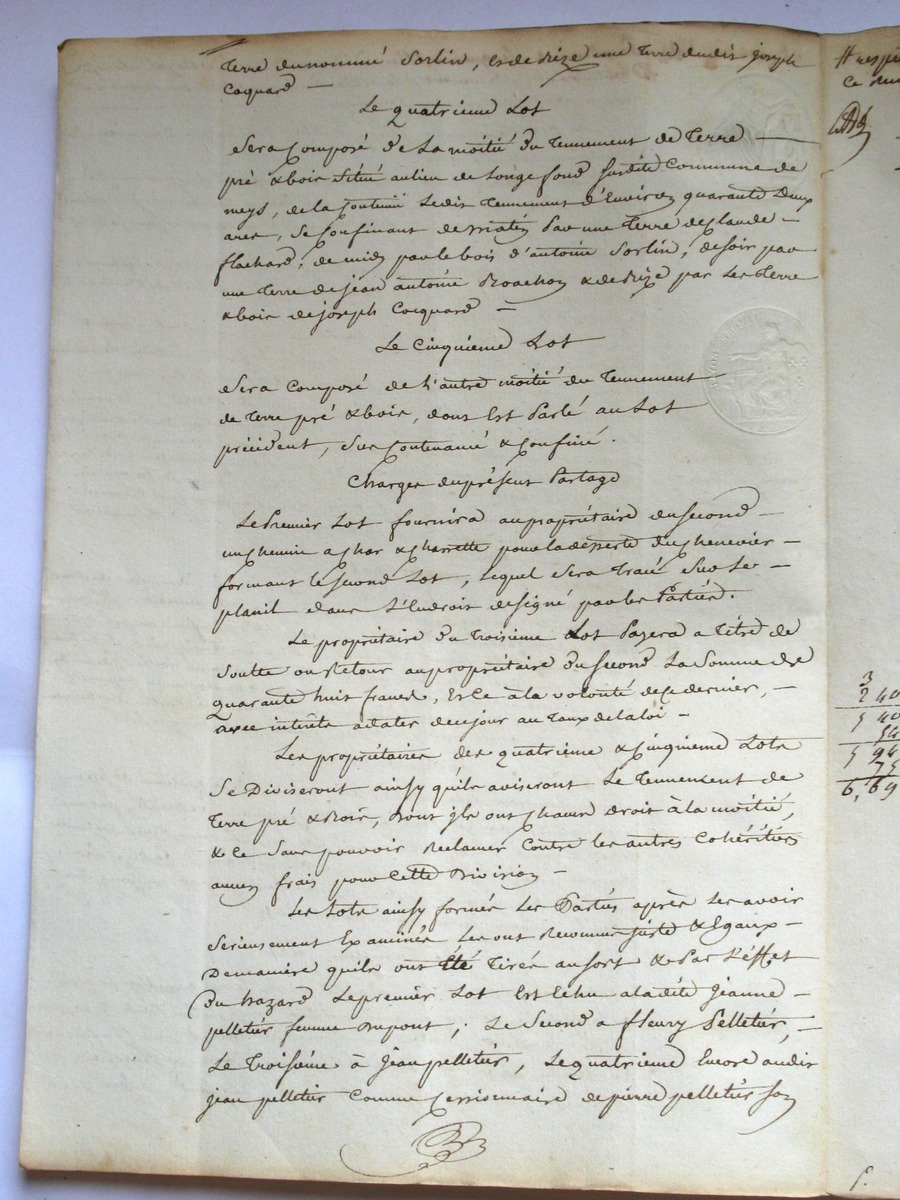 Terre du nommé Sorlin, & de Bize une Terre dudit joseph
Coquard —
Le quatrieme Lot
Sera Composé de La moitié du Tennement de Terre —
pré & bois Situé au lieu de Longe fond susdite Commune de
meys, de la Contenue Ledit Tennement d'Environ quarante Deux
ares, Se Confinant de matin Par une Terre de Claude —
flachard, de midy par le bois d'antoine Sorlin, de soir par
une Terre de jean antoine Broachon & de Bize par Les Terre
& bois de joseph Coquard —
Le Cinquieme Lot
Sera Composé de L'autre moitié du Tennement
de Terre pré & bois, dont Est Parlé au Lot
précédent, Sus Contenancé & Confiné.
Charges du présent Partage
Le Premier Lot fournira au propriétaire du Second —
un Chemin a Char & Charrette pour la désserte du Chenevier —
formant le Second Lot, lequel Sera Tracé Sur Le —
planil dans L'Endroit designé par les Parties.
Le propriétaire du Troisieme Lot Payera a Titre de
Soulte ou Retour au propriétaire du Second La Somme de
quarante huit francs, Et Ce à la volonté de Ce dernier, —
avec intérêts a dater de ce jour au Taux de la loi —
Les propriétaires des quatrieme & Cinquieme Lots
Se Diviseront ainsy qu'ils aviseront Le Tennement de
Terre pré & Bois, Dont ils ont Chacun Droit à la moitié,
& Ce Sans pouvoir Reclamer Contre les autres Cohéritiers
aucun frais pour Cette Division —
Les Lots ainsy formés Les Parties après Les avoir
Serieusement Examinés Les ont Reconnus juste & Egaux —
De maniere qu'ils ont Eté Tirés au Sort & Par L'éffet
Du hazard Le premier Lot Est Echu a la dite Jeanne —
pelletier femme Dupont, Le Second a fleury Pelletier, —
Le Troisieme à Jean pelletier, Le quatrieme Encore audit
Jean pelletier Comme Cessionnaire de pierre pelletier Son
3
2 40
5 40
54
5 94
75
6,69